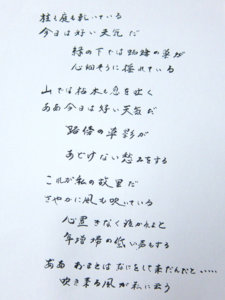 柱も庭も乾いている
今日は好い天気だ
縁の下では蜘蛛の巣が
心細そうに揺れている
山では枯木も息を吐く
ああ今日は好い天気だ
路傍の草影が
あどけない愁みをする
これが私の故里だ
さやかに風も吹いている
心置きなく泣かれよと
年増婦の低い声もする
ああ おまえはなにをして来たのだと……
吹き来る風が私に云う